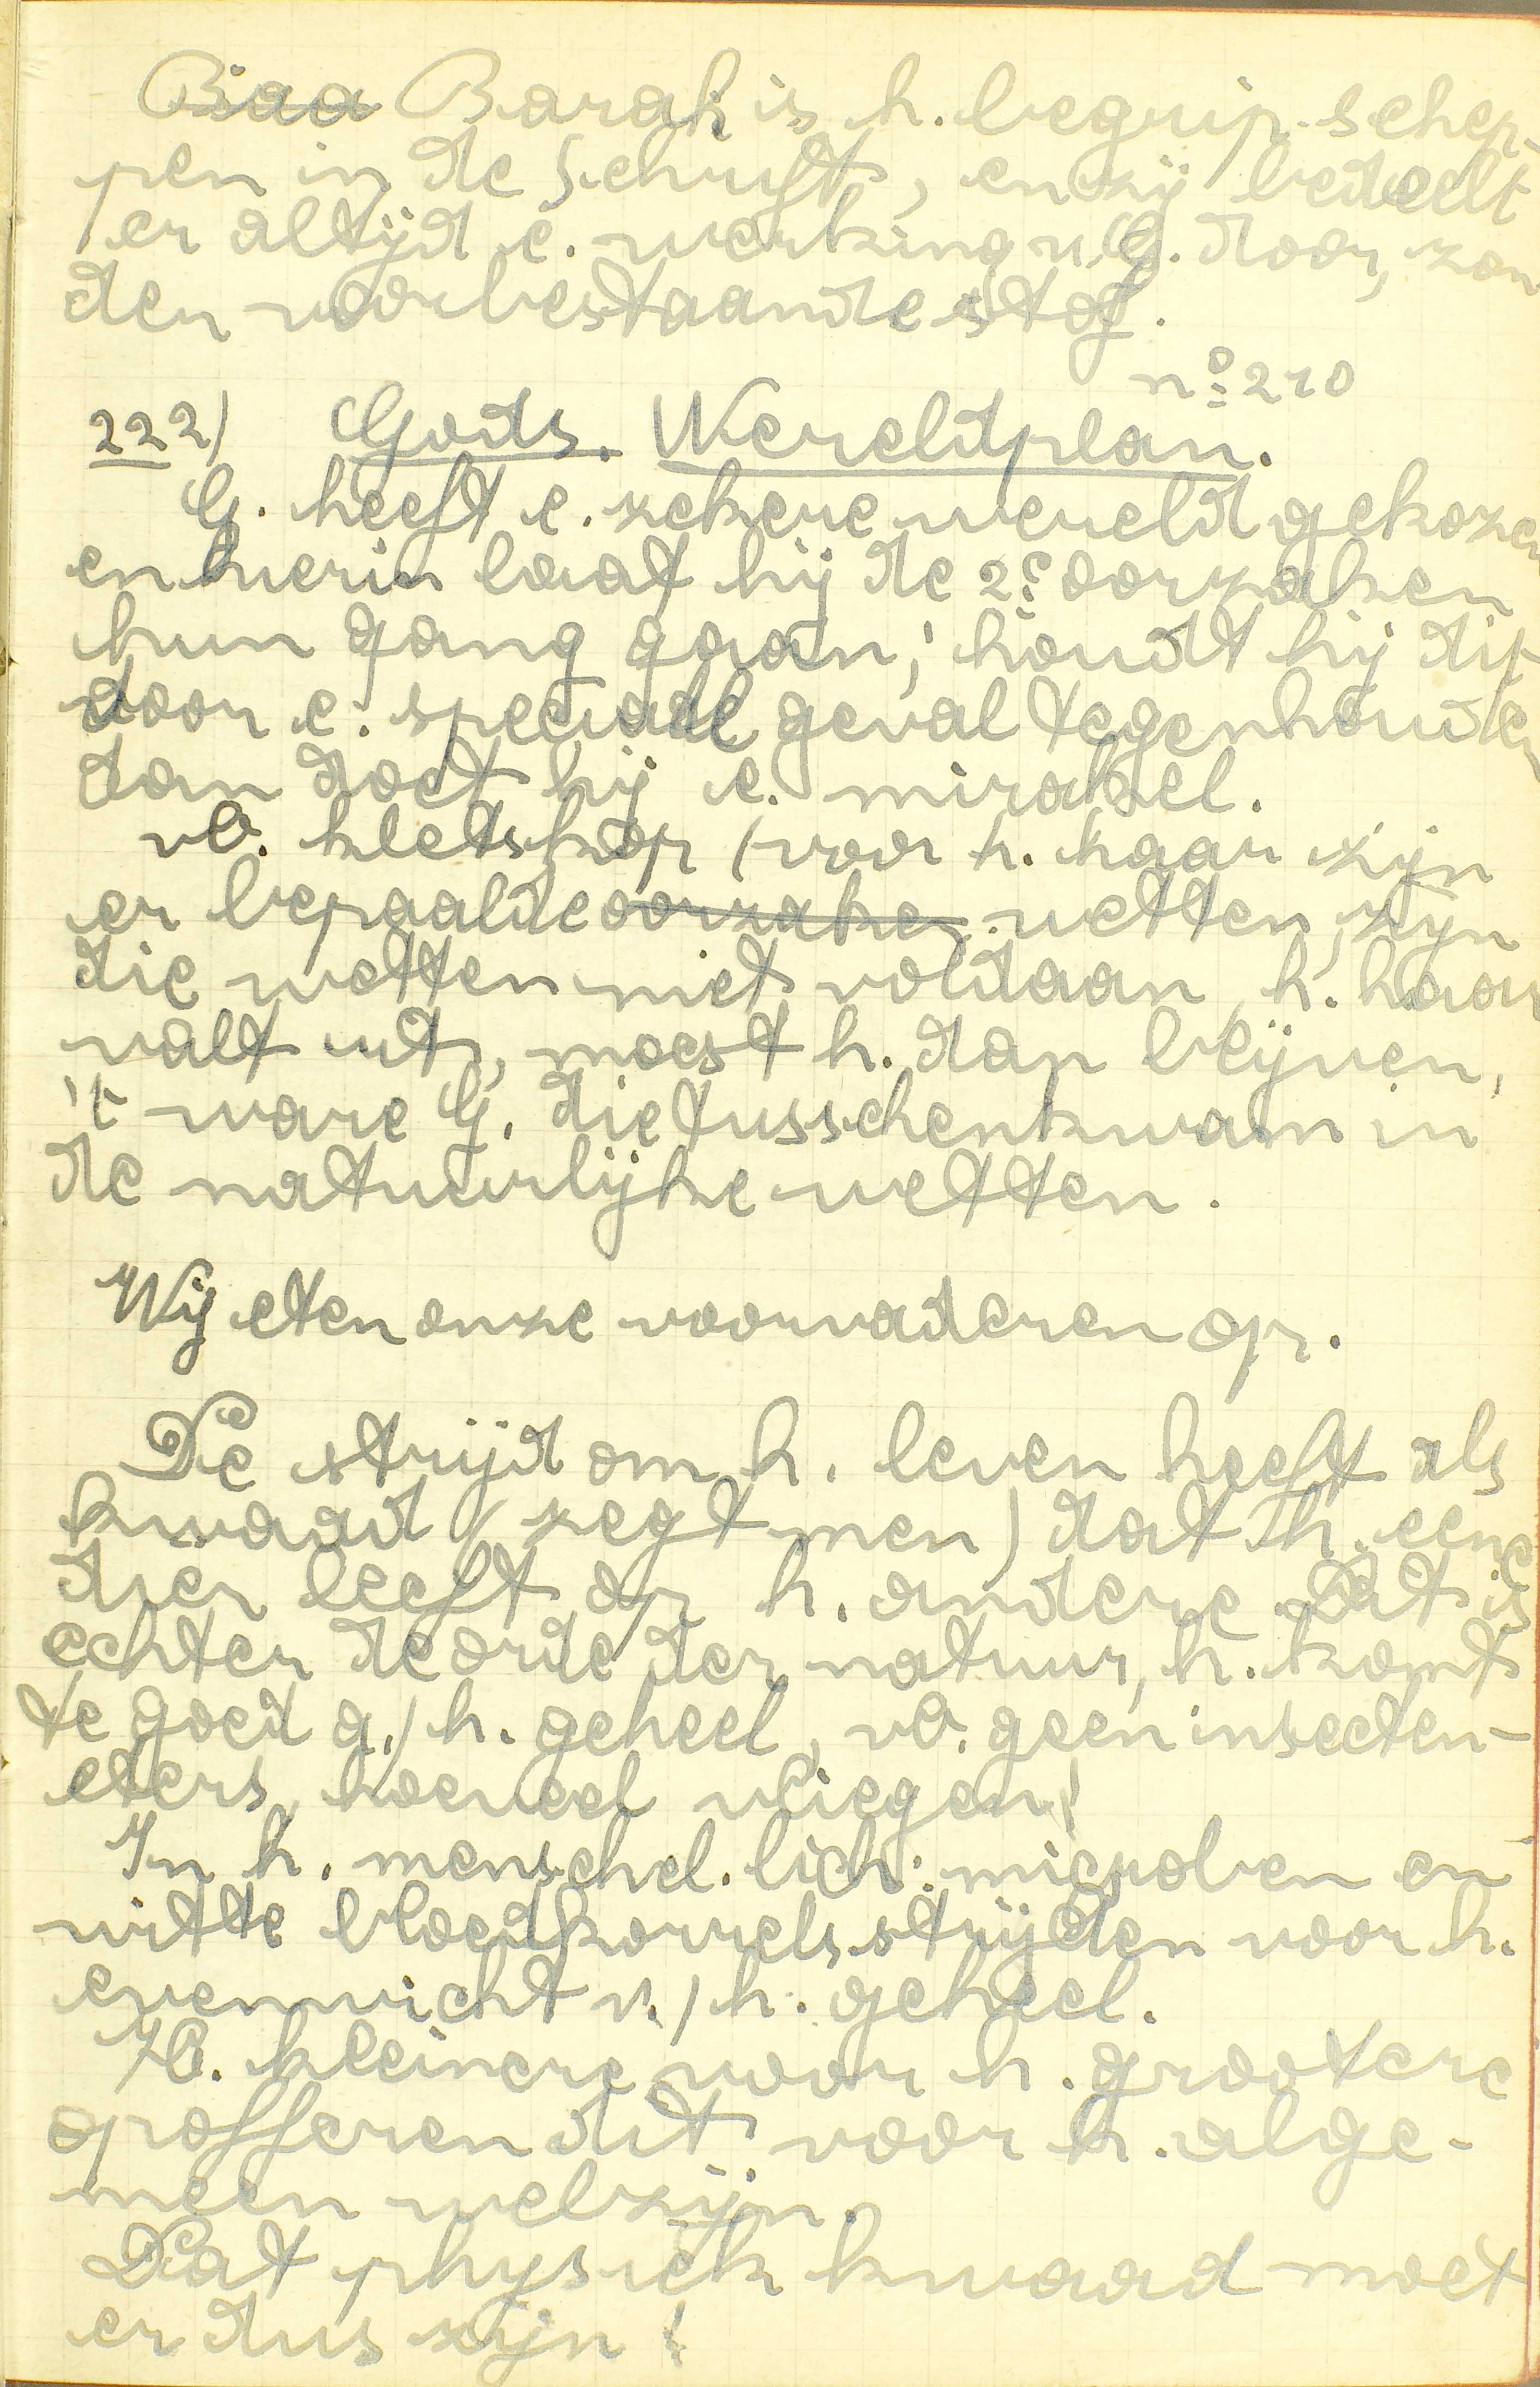 ~~Baa~~ Barah is h. begrip schep-
pen in de Schrift, en zij bedeelt
er altijd e. werking v/G. door, zon
den voorbestaande stof.
nº 210
222) Gods. Wereldplan.
G. heeft e. zekere wereld gekozen
en hierin laat hij de 2e oorzaken
hun gang gaan; houdt hij dit
door e. speciaal geval tegenhouden
dan doet hij e. mirakel.
vb. kletskop (voor h. haar zijn
er bepaalde ~~oorzaken~~ wetten, zijn
die wetten niet voldaan, h. haar
valt uit, moest h. dan blijven,
't ware G. die tusschenkwam in
de natuurlijke wetten.
Wij eten onze voorvaderen op.
De strijd om h. leven heeft als
kwaad (zegt men) dat h. eene
dier leeft op h. andere. Dat is
echter de orde der natuur, h. komt
te goed a./h. geheel, vb. geen insecten-
eters, hoeveel vliegen!
In h. menschel. lich. microben en
witte bloedkorrels strijden voor h.
evenwicht v./h. geheel.
Hb. kleinere voor h. grootere
opofferen dit voor h. alge-
meen welzijn.
Dat physiek kwaad moet
er dus zijn!